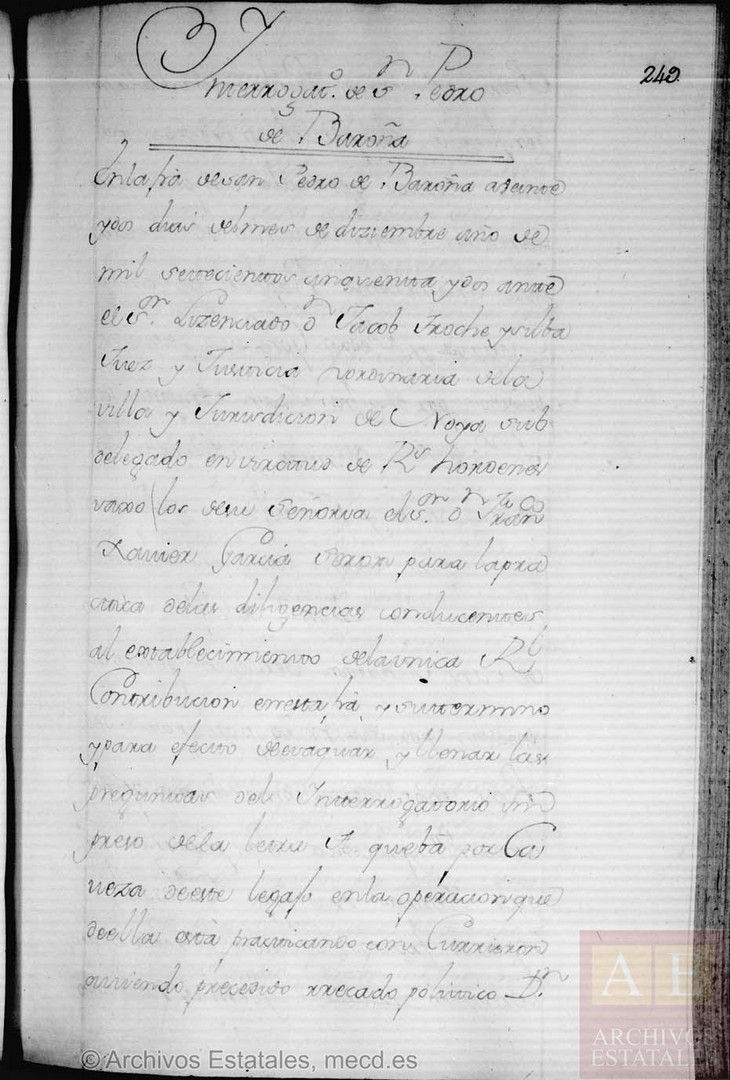 249.
Interrogat.º de S.n Pedro
de Baroña
En la fra de san Pedro de Baroña a veinte
y dos dias del mes de diziembre año de
mil setecientos cinquenta y dos ante
el S.or Lizenciado D.n Jacob Froche y silba
Juez y Justicia hordinaria de la
villa y Jurisdicion de Noya sub
delegado en virtud de R.s hordenes
de su Señoria el S.or D.n Fran.co
Xavier Garcia Seron para la pra
ctica de las diligencias conducentes
al establecimiento de la unica R.l
Contribucion en esta fra y su termino
y para efecto de evaquar y llenar las
preguntas del Interrogatorio im
preso de la letra A. que bá por Ca
veza de este legajo en la operacion que
de ella está practicando con
aviendo precedido rrecado politico D.n
© Archivos Estatales, mecd.es
AE
ARCHIVOS
ESTATALES